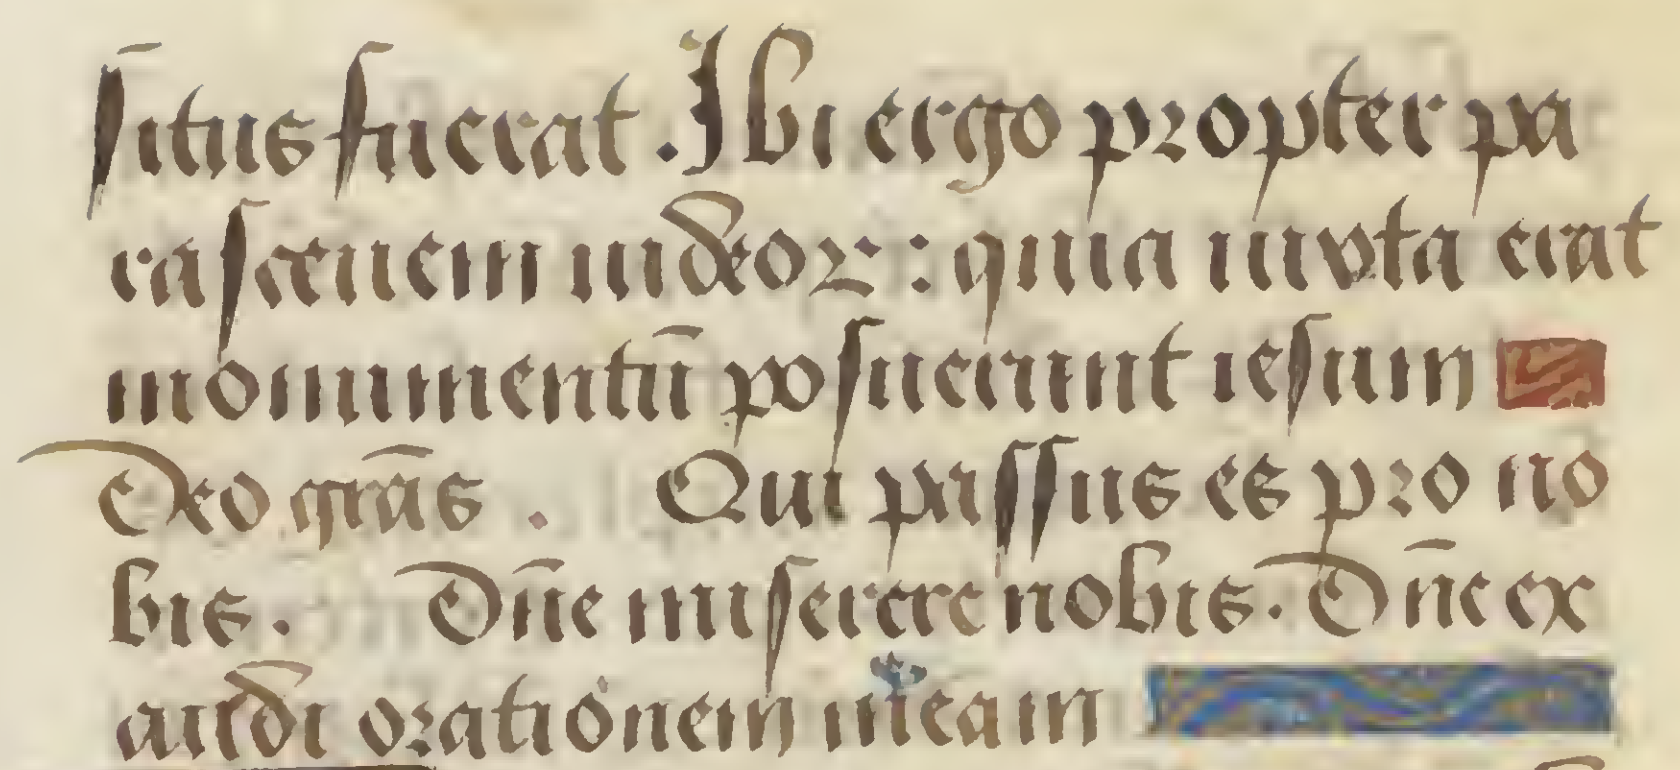 situs fuerat. Ibi ergo propter pa
rasceuem iudeoꝝ: quia iuxta erat
monumentū posuerunt iesum
Deo grās. Qui passus es pro no
bis. Dn̄e miserere nobis. Dn̄e ex
audi orationem meam